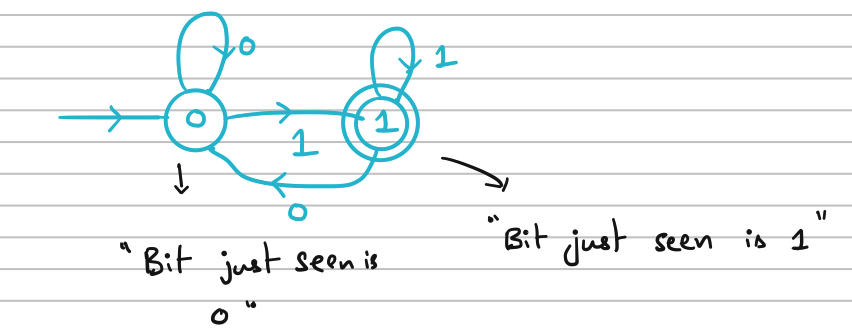 0 1
0 1
1
0
"Bit just seen is 1"
"Bit just seen is
0"